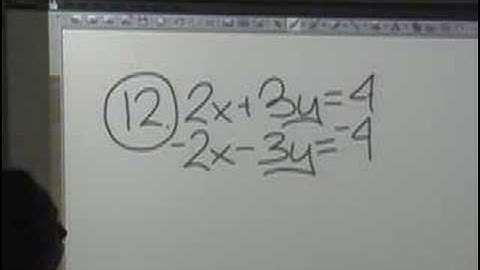 12. 2x+3y=4
-2x-3y=-4